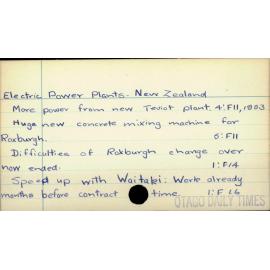 Electric Power Plants. New Zealand
More power from new Teviot plant. 4:F11, 1903
Huge new concrete mixing machine for
Roxburgh. 6:F11
Difficulties of Roxburgh change over
now ended. 1:F14
Speed up with Waitaki: Work already
months before contract time. 1:F16
OTAGO DAILY TIMES